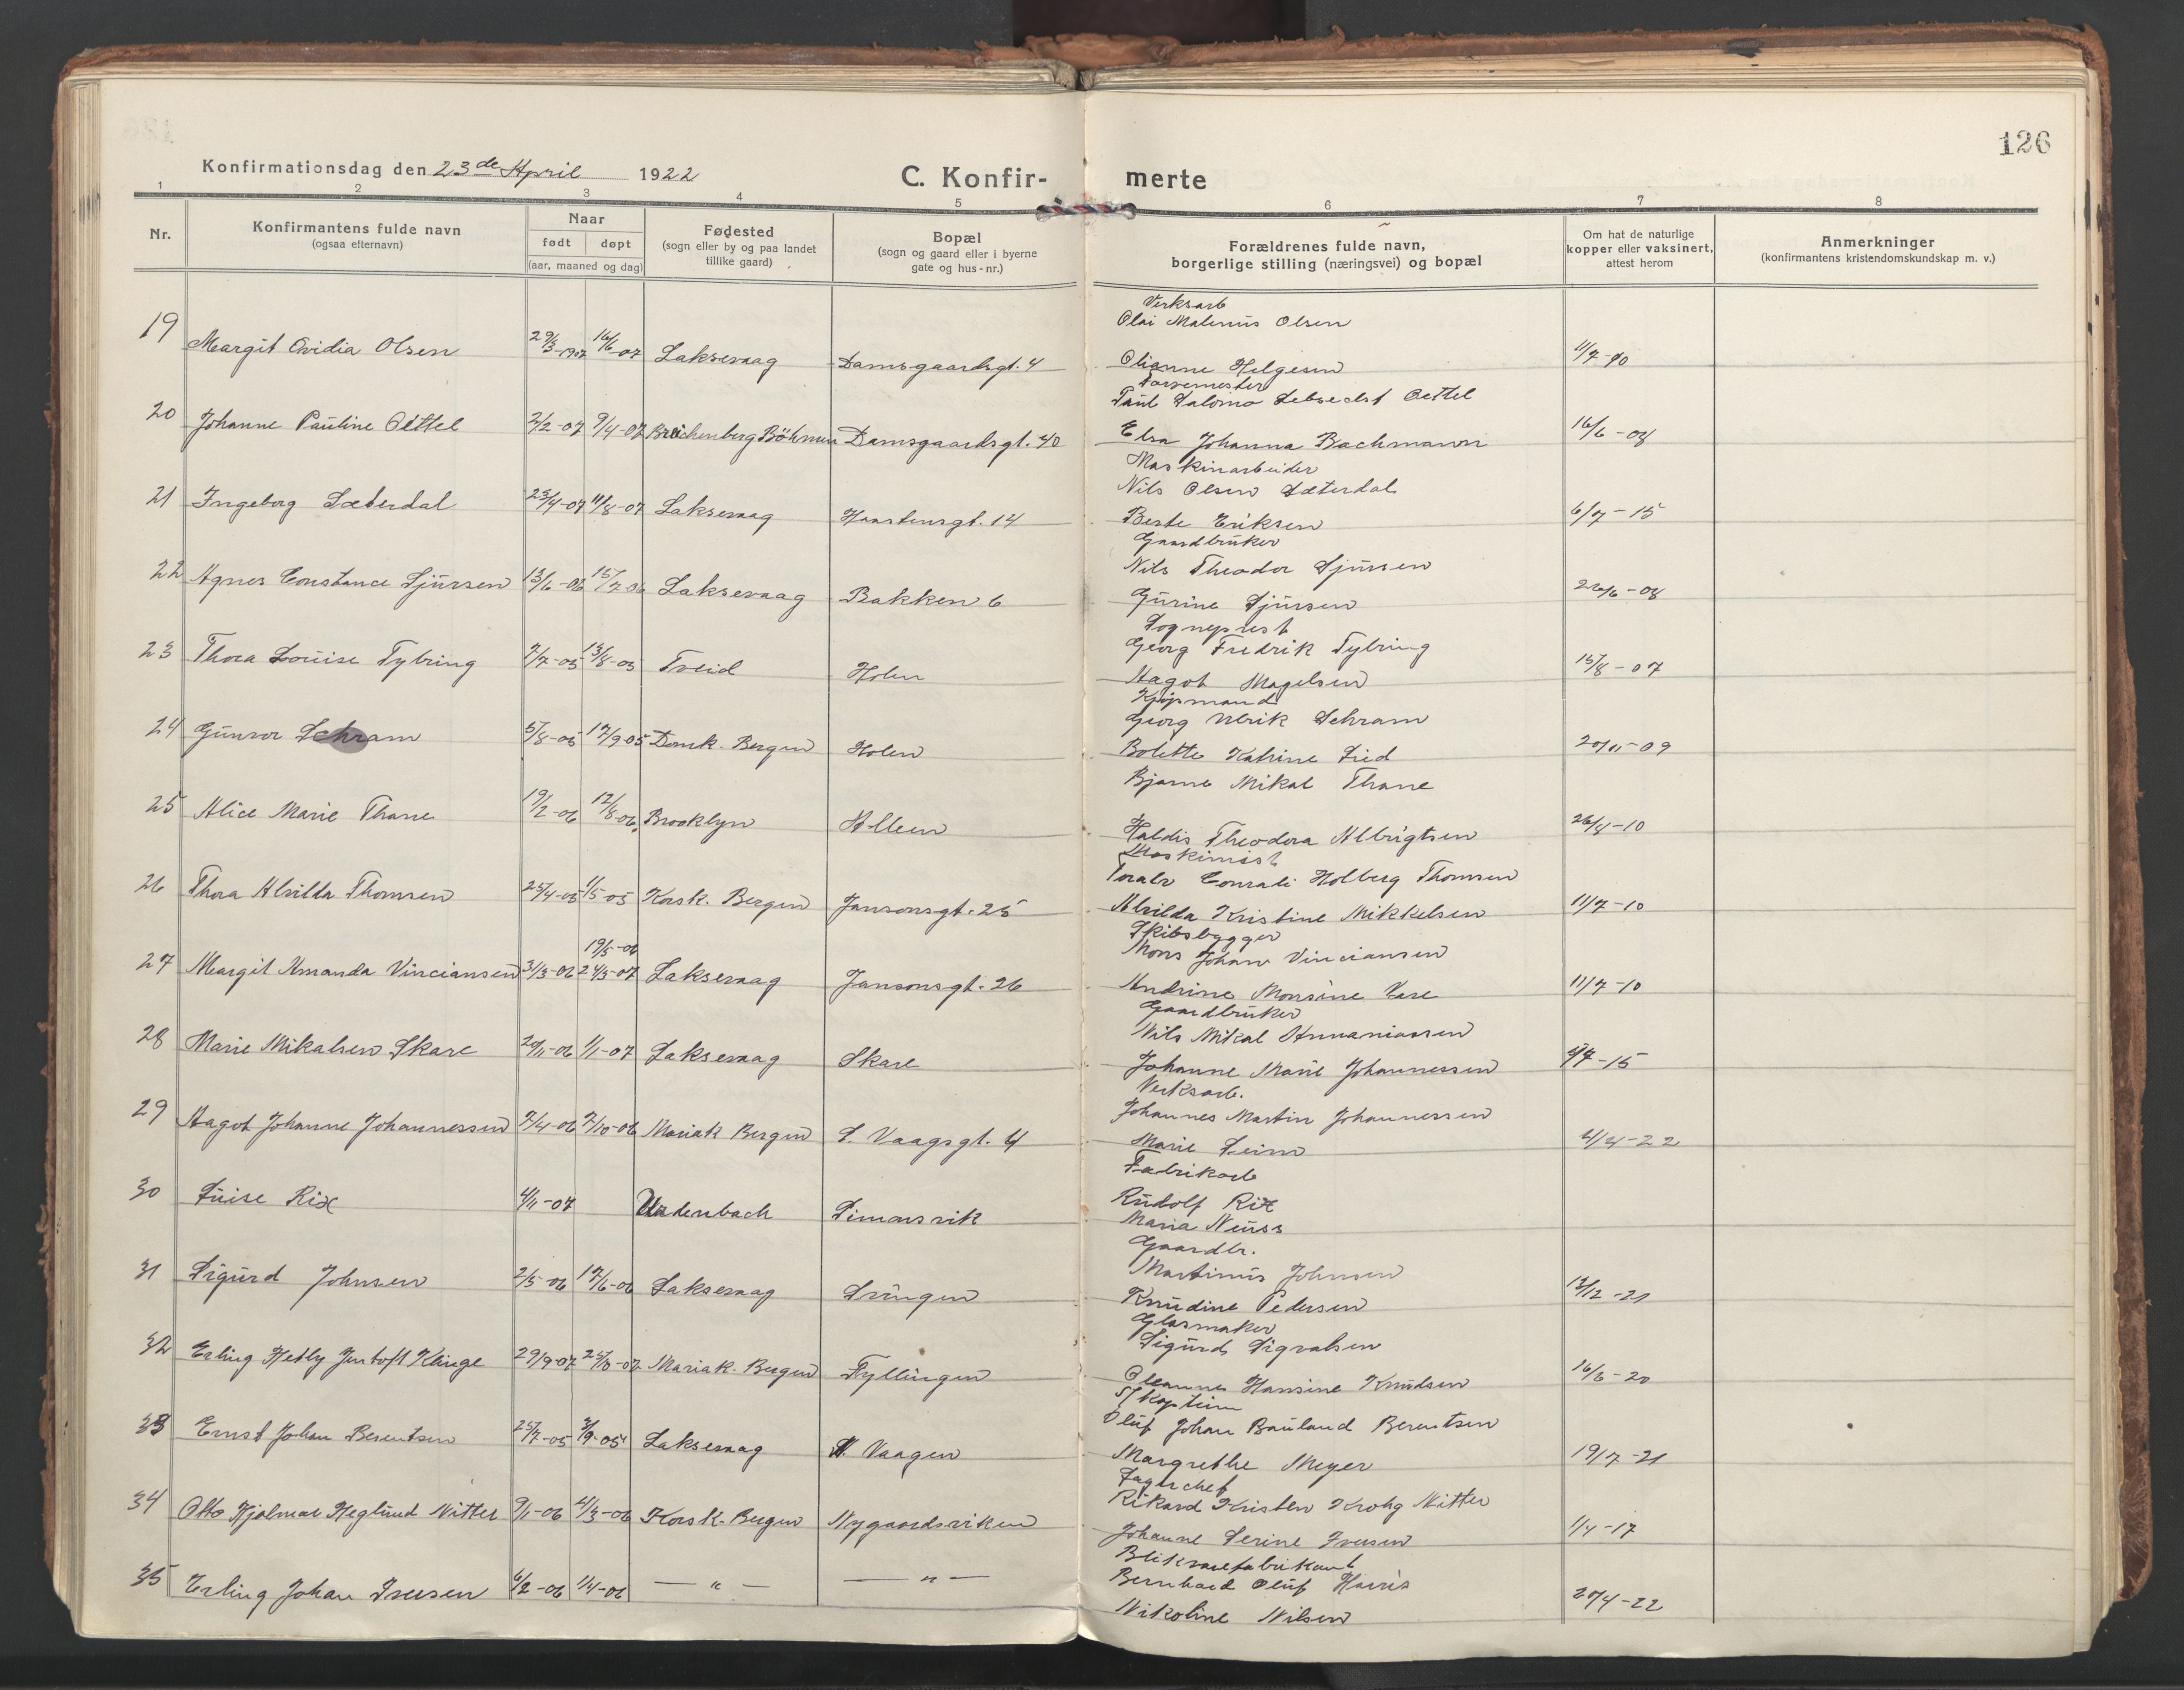 126
Konfirmationsdag den 23de April 1922
C. Konfir- merte
1 2 3 4 5 6 7 8
Nr.
Konfirmantens fulde navn (ogsaa efternavn)
Naar født døpt (aar, maaned og dag)
Fødested (sogn eller by og paa landet tillike gaard)
Bopæl (sogn og gaard eller i byerne gate og hus-nr.)
Forældrenes fulde navn, borgerlige stilling (næringsvei) og bopæl
Om hat de naturlige kopper eller vaksinert, attest herom
Anmerkninger (konfirmantens kristendomskundskap m. v.)
Verksarb
Olai Malenus Olsen
19 Margit Ovidia Olsen 29/3-1907 16/6-07 Laksevaag Damsgaardsgt. 4
Olianne Helgesen 11/7-10
Farvemester
Paul Salomo Lebrecht Oettel
20 Johanne Pauline Oettel 2/2-07 9/4-07 Reichenberg Böhmen Damsgaardsgt. 40
Elsa Johanna Bachmann 16/6-08
Maskinarbeider
Nils Olsen Sæterdal
21 Ingeborg Sæterdal 23/4-07 11/8-07 Laksevaag Haastensgt. 14
Berte Eriksen 6/7-15
Gaardbruker
Nils Theodor Sjursen
22 Agnes Constance Sjursen 13/6-06 15/7-06 Laksevaag Bakken 6
Gurine Sjursen 22/6-08
Sogneprest
Georg Fredrik Tybring
23 Thora Louise Tybring 7/7-05 13/8-05 Treid Holen
Aagot Magelsen 15/8-07
Kjøpmand
Georg Ulrik Schram
24 Gunvor Schram 5/8-05 17/9-05 Domk. Bergen Holen
Bolette Katrine Lied 20/11-09
Bjarne Mikal Thane
25 Alice Marie Thane 19/2-06 12/8-06 Brooklyn Alleen
Haldis Theodora Albrigtsen 26/4-10
Maskinist
Toralv Conradi Holberg Thomsen
26 Thora Alvilda Thomsen 25/4-05 1/5-05 Korsk. Bergen Jansonsgt. 25
Alvilda Kristine Mikkelsen 11/7-10
Skibsbygger
Mons Johan Vinciansen
19/5-06
27 Margit Amanda Vinciansen 31/3-06 24/3-07 Laksevaag Jansonsgt. 26
Andrine Monsine Vare 11/7-10
Gaardbruker
Nils Mikal Annaniassen
28 Marie Mikalsen Skare 20/11-06 1/1-07 Laksevaag Skare
Johanne Marie Johannessen /7-15
Verksarb.
Johannes Martin Johannessen
29 Aagot Johanne Johannessen 2/4-06 7/10-06 Mariak Bergen L. Vaagsgt. 4
Marie Leim 4/4-22
Fabrikarb
Rudolf Rix
30 Luise Rix 4/11-07 Udenbach Simonsvik
Maria Neuss
Gaardbr.
Martinus Johnsen
31 Sigurd Johnsen 2/5-06 17/6-06 Laksevaag Liungen
Knudine Pedersen 13/12-21
Glasmaker
Sigurd Sigvalsen
32 Erling Hetly Jentoft Klinge 29/9-07 25/8-07 Mariak. Bergen Fyllingen
Oleanne Hansine Knudsen 16/6-20
Skaptein
Oluf Johan Bauland Berentsen
33 Ernst Johan Berentsen 25/7-05 3/9-05 Laksevaag N. Vaagen
Margrethe Meyer 19/7-21
Lagerchef
Rikard Kristen Krohg Nitter
34 Otto Hjalmar Heglund Nitter 9/1-06 4/3-06 Korsk. Bergen Nygaardsviken
Johanne Serine Iversen 1/4-17
Blikvarefabrikant
Bernhard Oluf Harris
35 Erling Johan Iversen 6/2-06 1/4-06 — " — — " —
Nikoline Nilsen 20/4-22